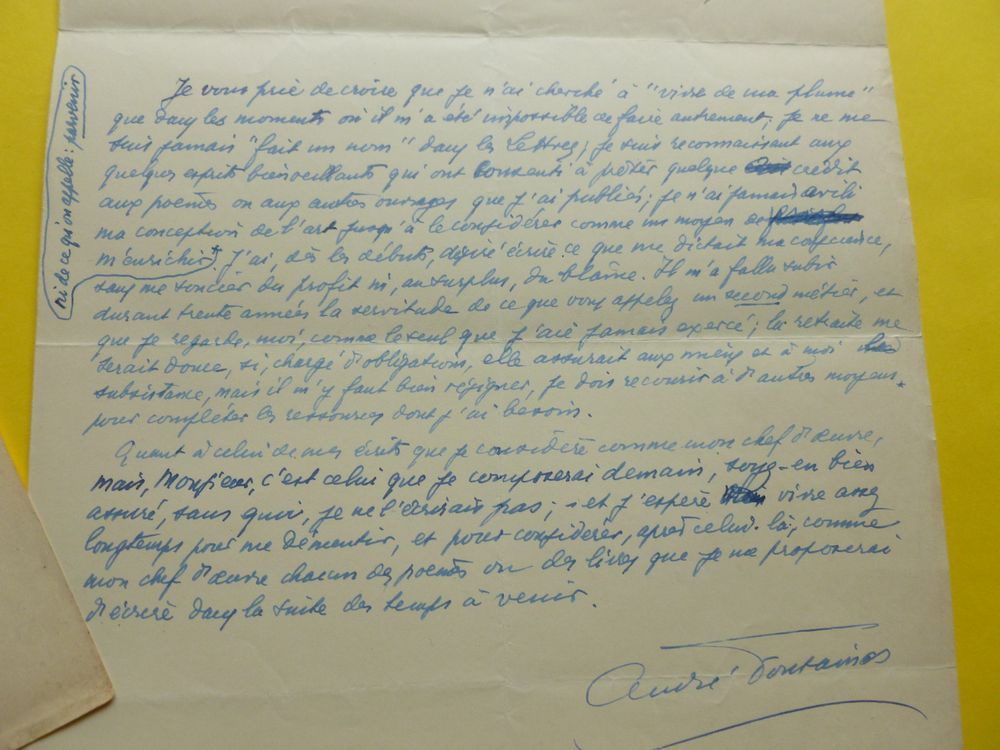 Je vous prie de croire que je n'ai cherché à "vivre de ma plume"
que dans les moments où il m'a été impossible de faire autrement; je ne me
suis jamais "fait un nom" dans les Lettres; je suis reconnaissant aux
quelques esprits bienveillants qui ont consenti à prêter quelque crédit
aux poèmes ou aux autres ouvrages que j'ai publiés; je n'ai jamais avili
ma conception de l'art jusqu'à le considérer comme un moyen de
m'enrichir + J'ai, dès les débuts, désiré écrire ce que me dictait ma conscience,
sans me soucier du profit ni, au surplus, du blâme. Il m'a fallu subir
durant trente années la servitude de ce que vous appelez un second métier, et
que je regarde, moi, comme le seul que j'aie jamais exercé; la retraite me
serait douce, si, chargé d'obligations, elle assurait aux miens et à moi
subsistance, mais il m'y faut bien résigner, je dois recourir à d'autres moyens
pour compléter les ressources dont j'ai besoin.
Quant à celui de mes écrits que je considère comme mon chef d'œuvre,
mais, Monsieur, c'est celui que je composerai demain, soyez-en bien
assuré, sans quoi, je ne l'écrirais pas; et j'espère vivre assez
longtemps pour me démentir, et pour considérer, après celui-là, comme
mon chef d'œuvre chacun des poèmes ou des livres que je me proposerai
d'écrire dans la suite des temps à venir.
André Fontainas
ni de ce qu'on appelle: parvenir